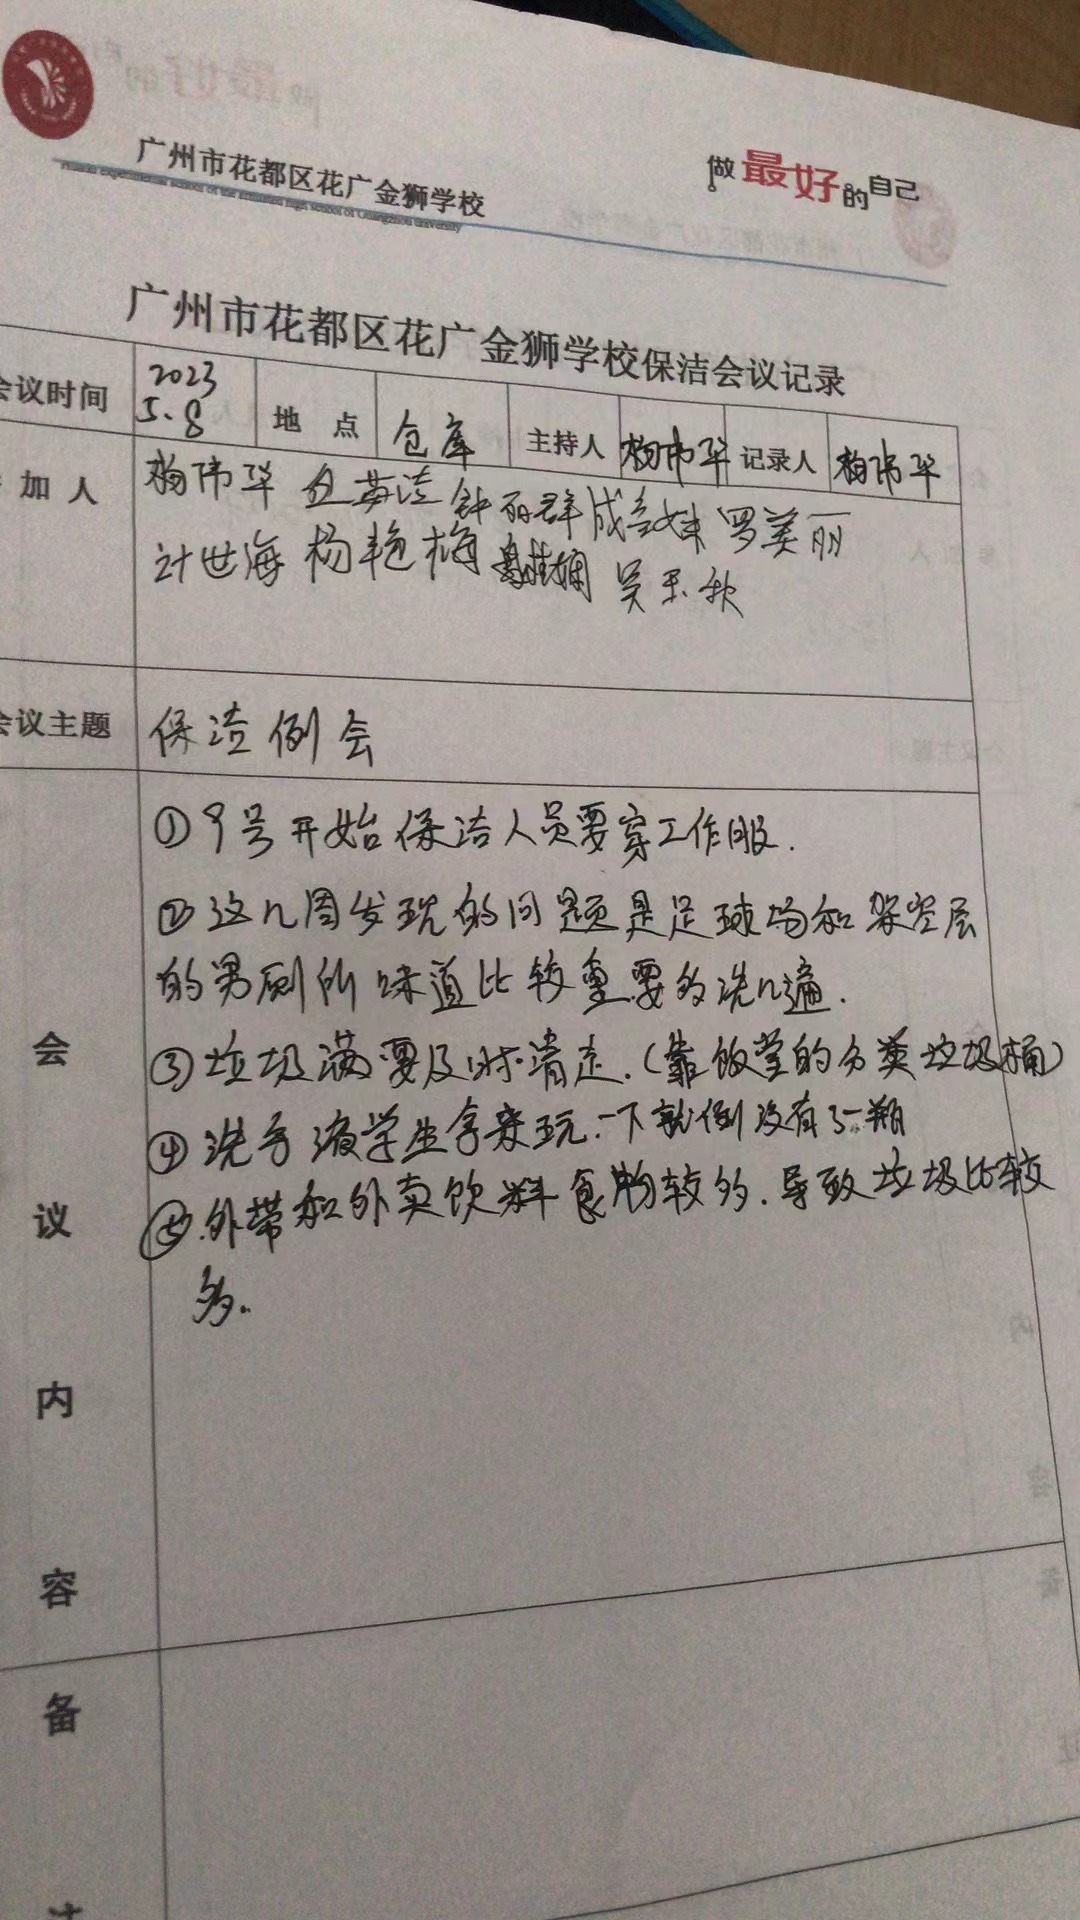 广州市花都区花广金狮学校
做最好的自己
广州市花都区花广金狮学校保洁会议记录
会议时间 2023 5.8 地点 仓库 主持人 梅伟华 记录人 梅伟华
加人 梅伟华 英洁 钟丽群 成金妹 罗美丽
计世海 杨艳梅 吴玉秋
会议主题 保洁例会
会议内容
①9号开始保洁人员要穿工作服.
②这几周发现的问题是足球场和架空层
的男厕所味道比较重.要多洗几遍.
③垃圾满要及时清走.(靠饭堂的分类垃圾桶)
④洗手液学生拿来玩.一下就倒没有了一瓶
⑤.外带和外卖饮料食物较多.导致垃圾比较
多.
备